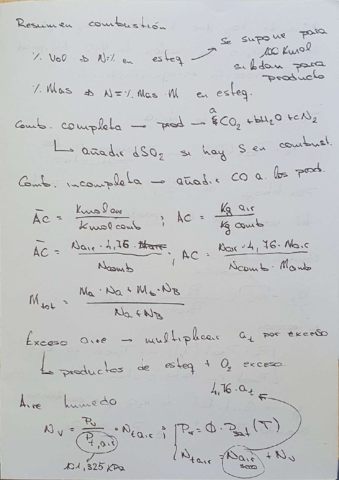 Resumen combustión
% Vol ⇒ N=% en esteq → se supone para 100 Kmol si lo dan para producto
% Mas ⇒ N = % Mas · M en esteq.
Comb. completa → prod → aCO2 + bH2O + cN2
↳ añadir dSO2 si hay S en combust.
Comb. incompleta → añadir CO a los prod.
A̅C̅ = Kmol aire / Kmol comb ; AC = Kg aire / Kg comb
A̅C̅ = Naire · 4,76 / Ncomb ; AC = Naire · 4,76 · Maire / Ncomb · Mcomb
Mtot = Ma · Na + Mb · NB / Na + NB
Exceso aire → multiplicar at por exceso
↳ productos de esteq + O2 exceso
4,76 · at
Aire húmedo
Nv = Pv / Pt,aire · Nt aire ; Pv = Φ · Psat (T)
101,325 KPa
Nt aire = Naire seco + Nv